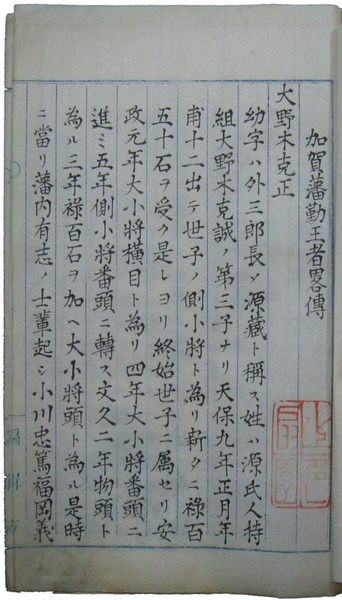 加賀藩勤王者畧傳
大野木克正
幼字ハ外三郎長ジ源藏ト稱ス姓ハ源氏人持
組大野木克誠ノ第三子ナリ天保九年正月年
甫十二出テ世子ノ側小將ト為リ新タニ祿百
五十石ヲ受ク是レヨリ終始世子ニ属セリ安
政元年大小將橫目ト為リ四年大小將番頭ニ
進ミ五年側小將番頭ニ轉ス文久二年物頭ト
為ル三年祿百石ヲ加ヘ大小將頭ト為ル是時
ニ當リ藩内有志ノ士輩起シ小川忠篤福岡義